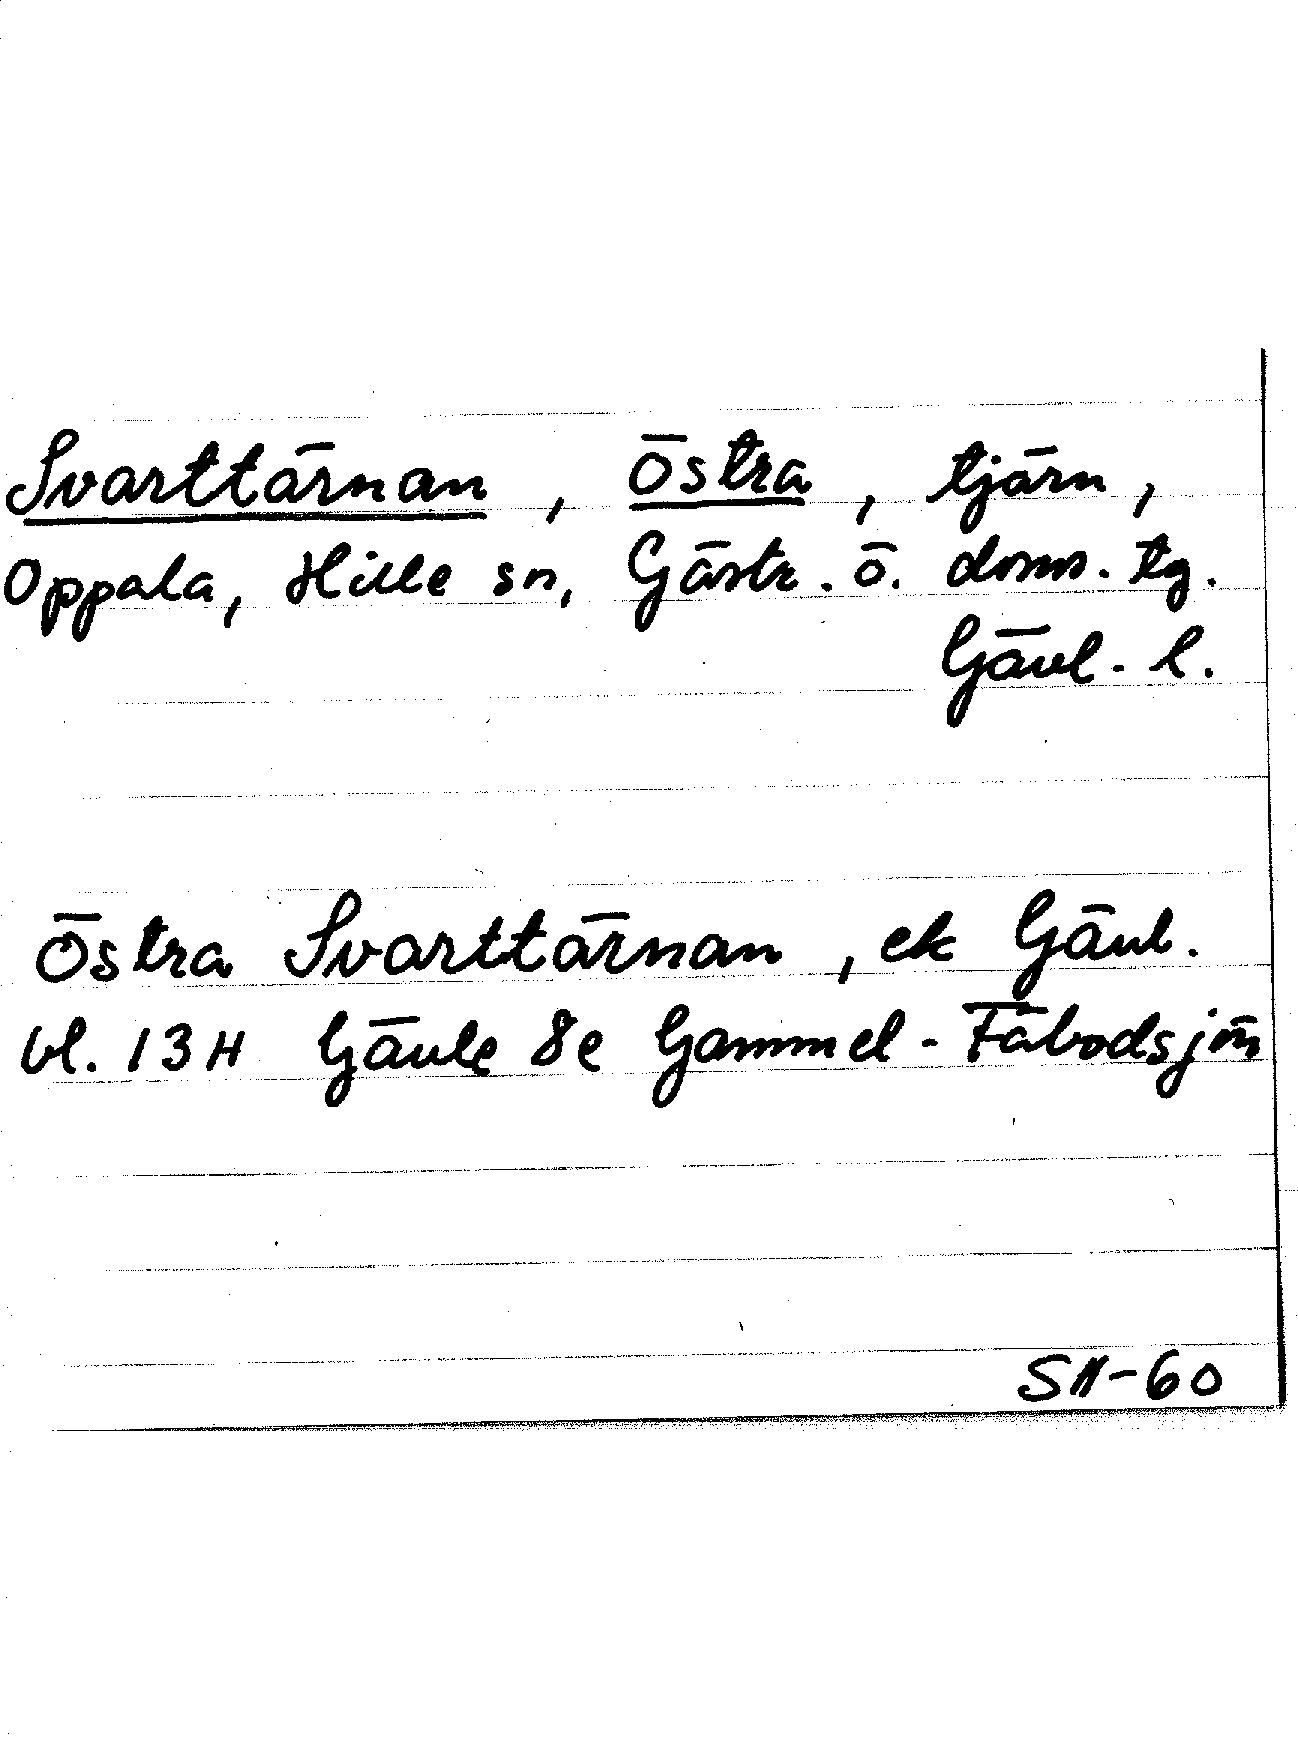 Svarttärnan, Östra, tjärn,
Oppala, Hille sn, Gästr. ö. doms. tg.
Gävl. l.
Östra Svarttärnan, ek Gävl.
bl. 13H Gävle 8e Gammel-Fäbodsjön
SN-60